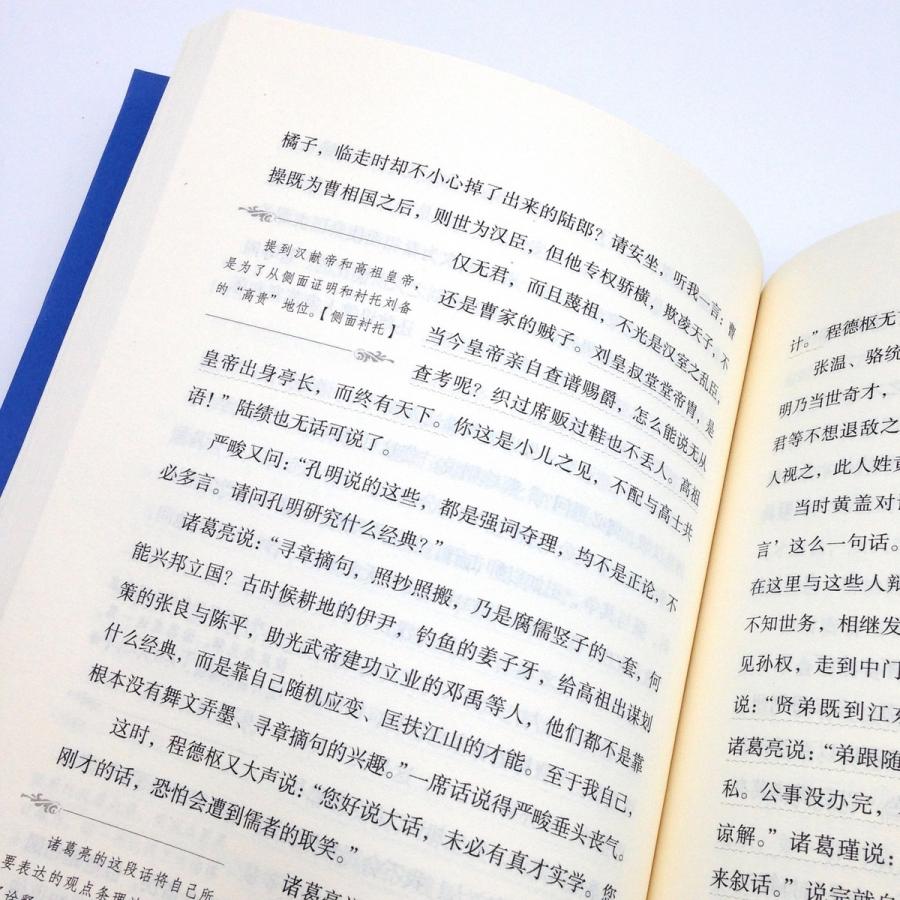 橘子，临走时却不小心掉了出来的陆郎？请安坐，听我一言：曹
操既为曹相国之后，则世为汉臣，但他专权骄横，欺凌天子，不
仅无君，而且蔑祖，不光是汉室之乱臣，
还是曹家的贼子。刘皇叔堂堂帝胄，是
当今皇帝亲自查谱赐爵，怎么能说无从
查考呢？织过席贩过鞋也不丢人。高祖
提到汉献帝和高祖皇帝，
是为了从侧面证明和衬托刘备
的“高贵”地位。【侧面衬托】
皇帝出身亭长，而终有天下。你这是小儿之见，不配与高士共
语！”陆绩也无话可说了。
严畯又问：“孔明说的这些，都是强词夺理，均不是正论，不
必多言。请问孔明研究什么经典？”
诸葛亮说：“寻章摘句，照抄照搬，乃是腐儒竖子的一套，何
能兴邦立国？古时候耕地的伊尹，钓鱼的姜子牙，给高祖出谋划
策的张良与陈平，助光武帝建功立业的邓禹等人，他们都不是靠
什么经典，而是靠自己随机应变、匡扶江山的才能。至于我自己，
根本没有舞文弄墨、寻章摘句的兴趣。”一席话说得严畯垂头丧气。
这时，程德枢又大声说：“您好说大话，未必有真才实学。您
刚才的话，恐怕会遭到儒者的取笑。”
诸葛亮的这段话将自己所
要表达的观点条理
诸葛亮
计。”程德枢无
张温、骆统
明乃当世奇才，
君等不想退敌之
人视之，此人姓
当时黄盖对
言’这么一句话。
在这里与这些人辩
不知世务，相继发
见孙权，走到中门
说：“贤弟既到江
诸葛亮说：“弟跟随
私。公事没办完，
谅解。”诸葛瑾说：
来叙话。”说完就